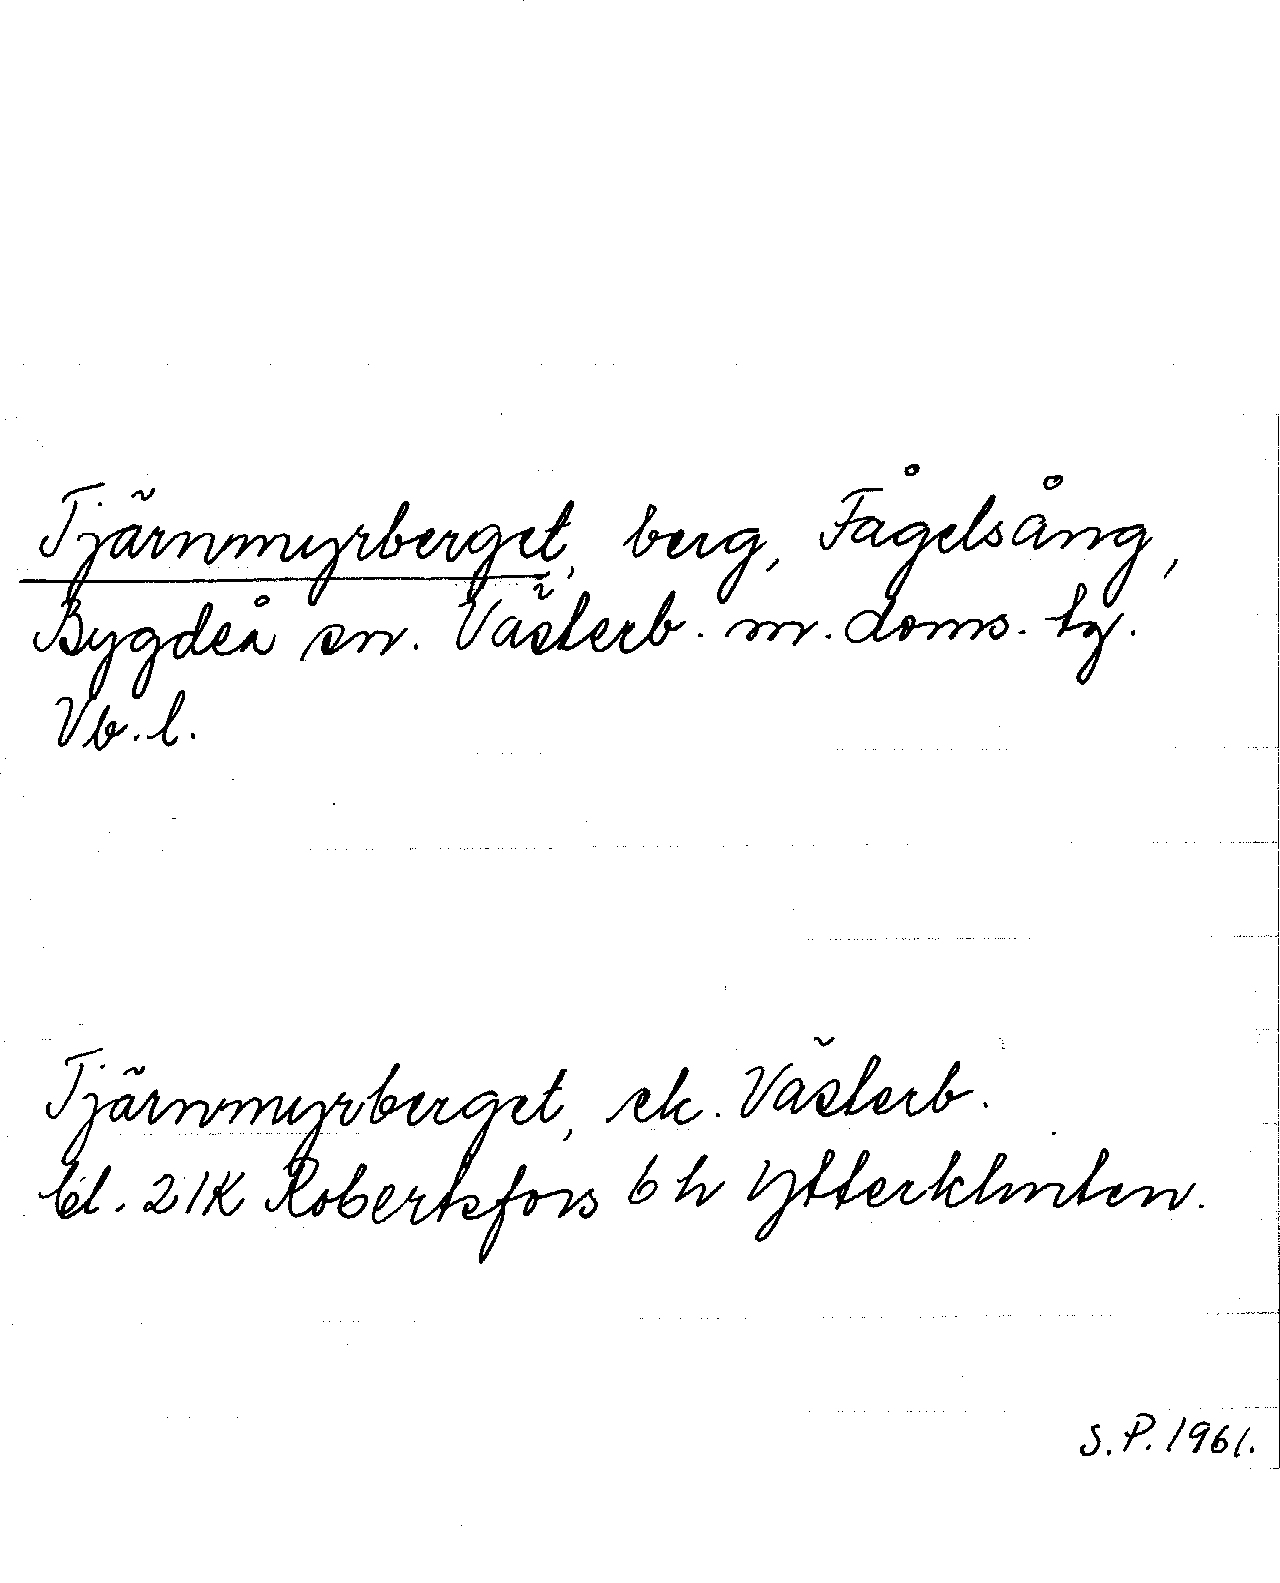 Tjärnmyrberget, berg, Fågelsång,
Bygdeå sn. Västerb. m. doms. tg.
Vb. l.
Tjärnmyrberget, ek. Västerb.
bl. 21K Robertsfors 6 h Ytterklinten.
S.P. 1961.